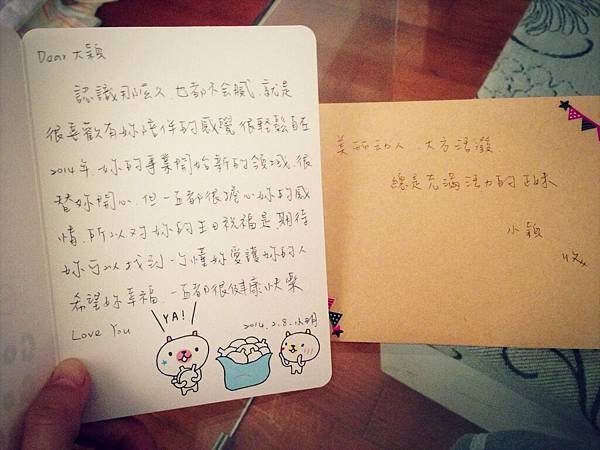 Dear 大穎
認識那麼久,也都不会膩,就是
很喜歡有妳陪伴的感覺,很輕鬆自在
2014年,妳的事業開始新的領域,很
替妳開心,但一直都很擔心妳的感
情,所以对妳的生日祝福是,期待
妳可以找到一个懂妳愛護妳的人
希望妳幸福,一直都很健康快樂
Love You
2014.2.8.小
YA!
美丽动人 大方活潑
總是充滿活力的正妹
小穎
收